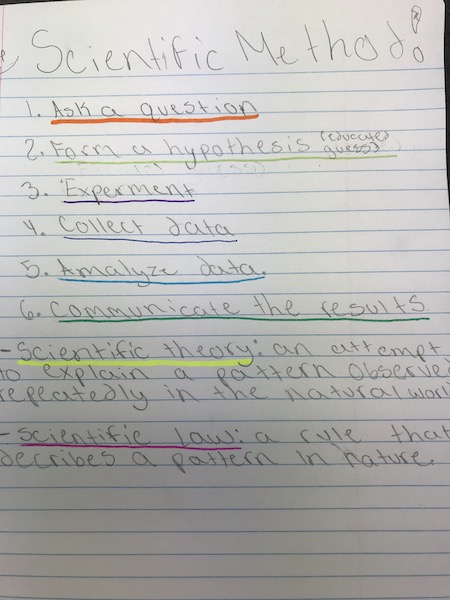 Scientific Method!
1. Ask a question
2. Form a hypothesis (educated guess)
3. Experment
4. Collect data
5. Analyze data.
6. Communicate the results
- Scientific theory: an attempt
to explain a pattern observed
repeatedly in the natural worl
- Scientific law: a rule that
decribes a pattern in nature.